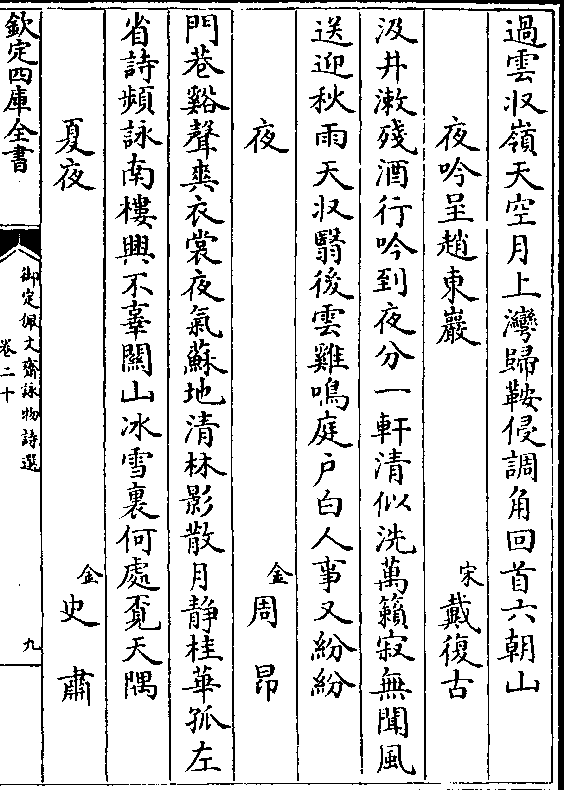 過雲収嶺天空月上灣歸鞍侵調角回首六朝山
夜吟呈趙東巖 宋 戴復古
汲井漱殘酒行吟到夜分一軒清似洗萬籟寂無聞風
送迎秋雨天収翳後雲雞鳴庭户白人事又紛紛
夜 金 周昂
門巷谿聲爽衣裳夜氣蘇地清林影散月静桂華孤左
省詩頻詠南樓興不辜關山氷雪裏何處覔天隅
夏夜 金 史肅
欽定四庫全書
御定佩文齋詠物詩選
卷二十
九